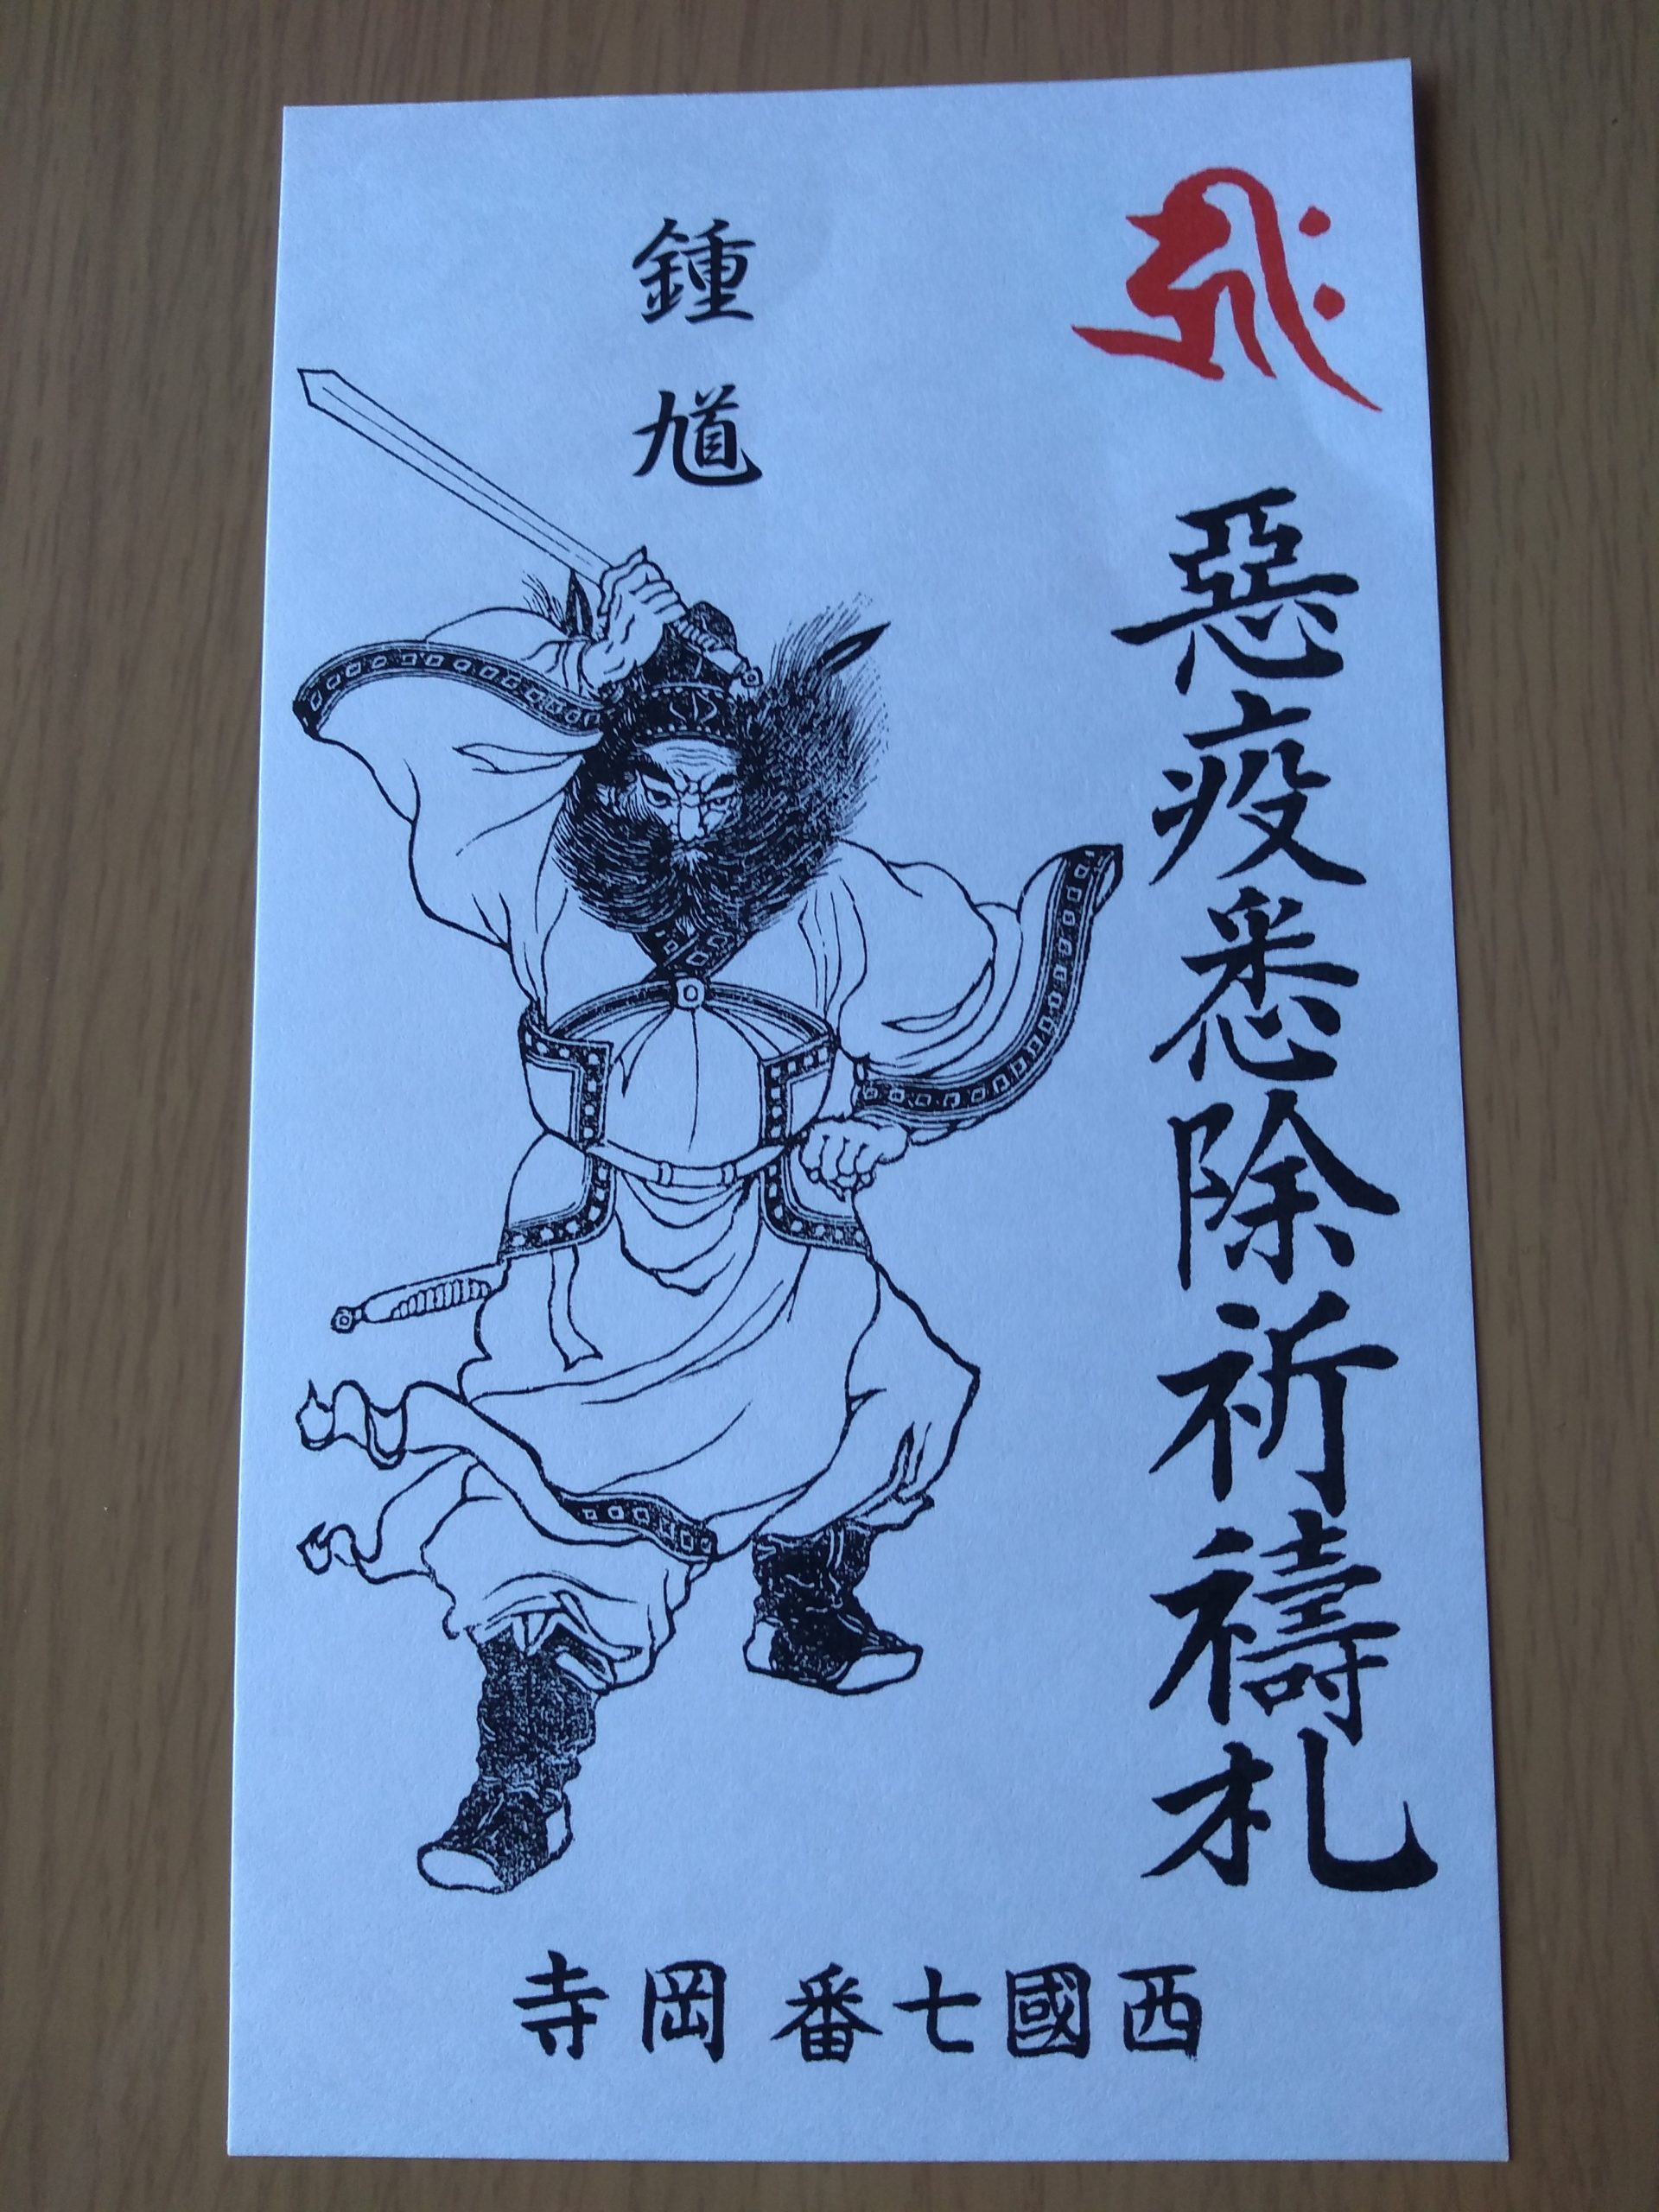 ह्रीः
惡疫悉除祈禱札
鍾馗
西國七番 岡寺